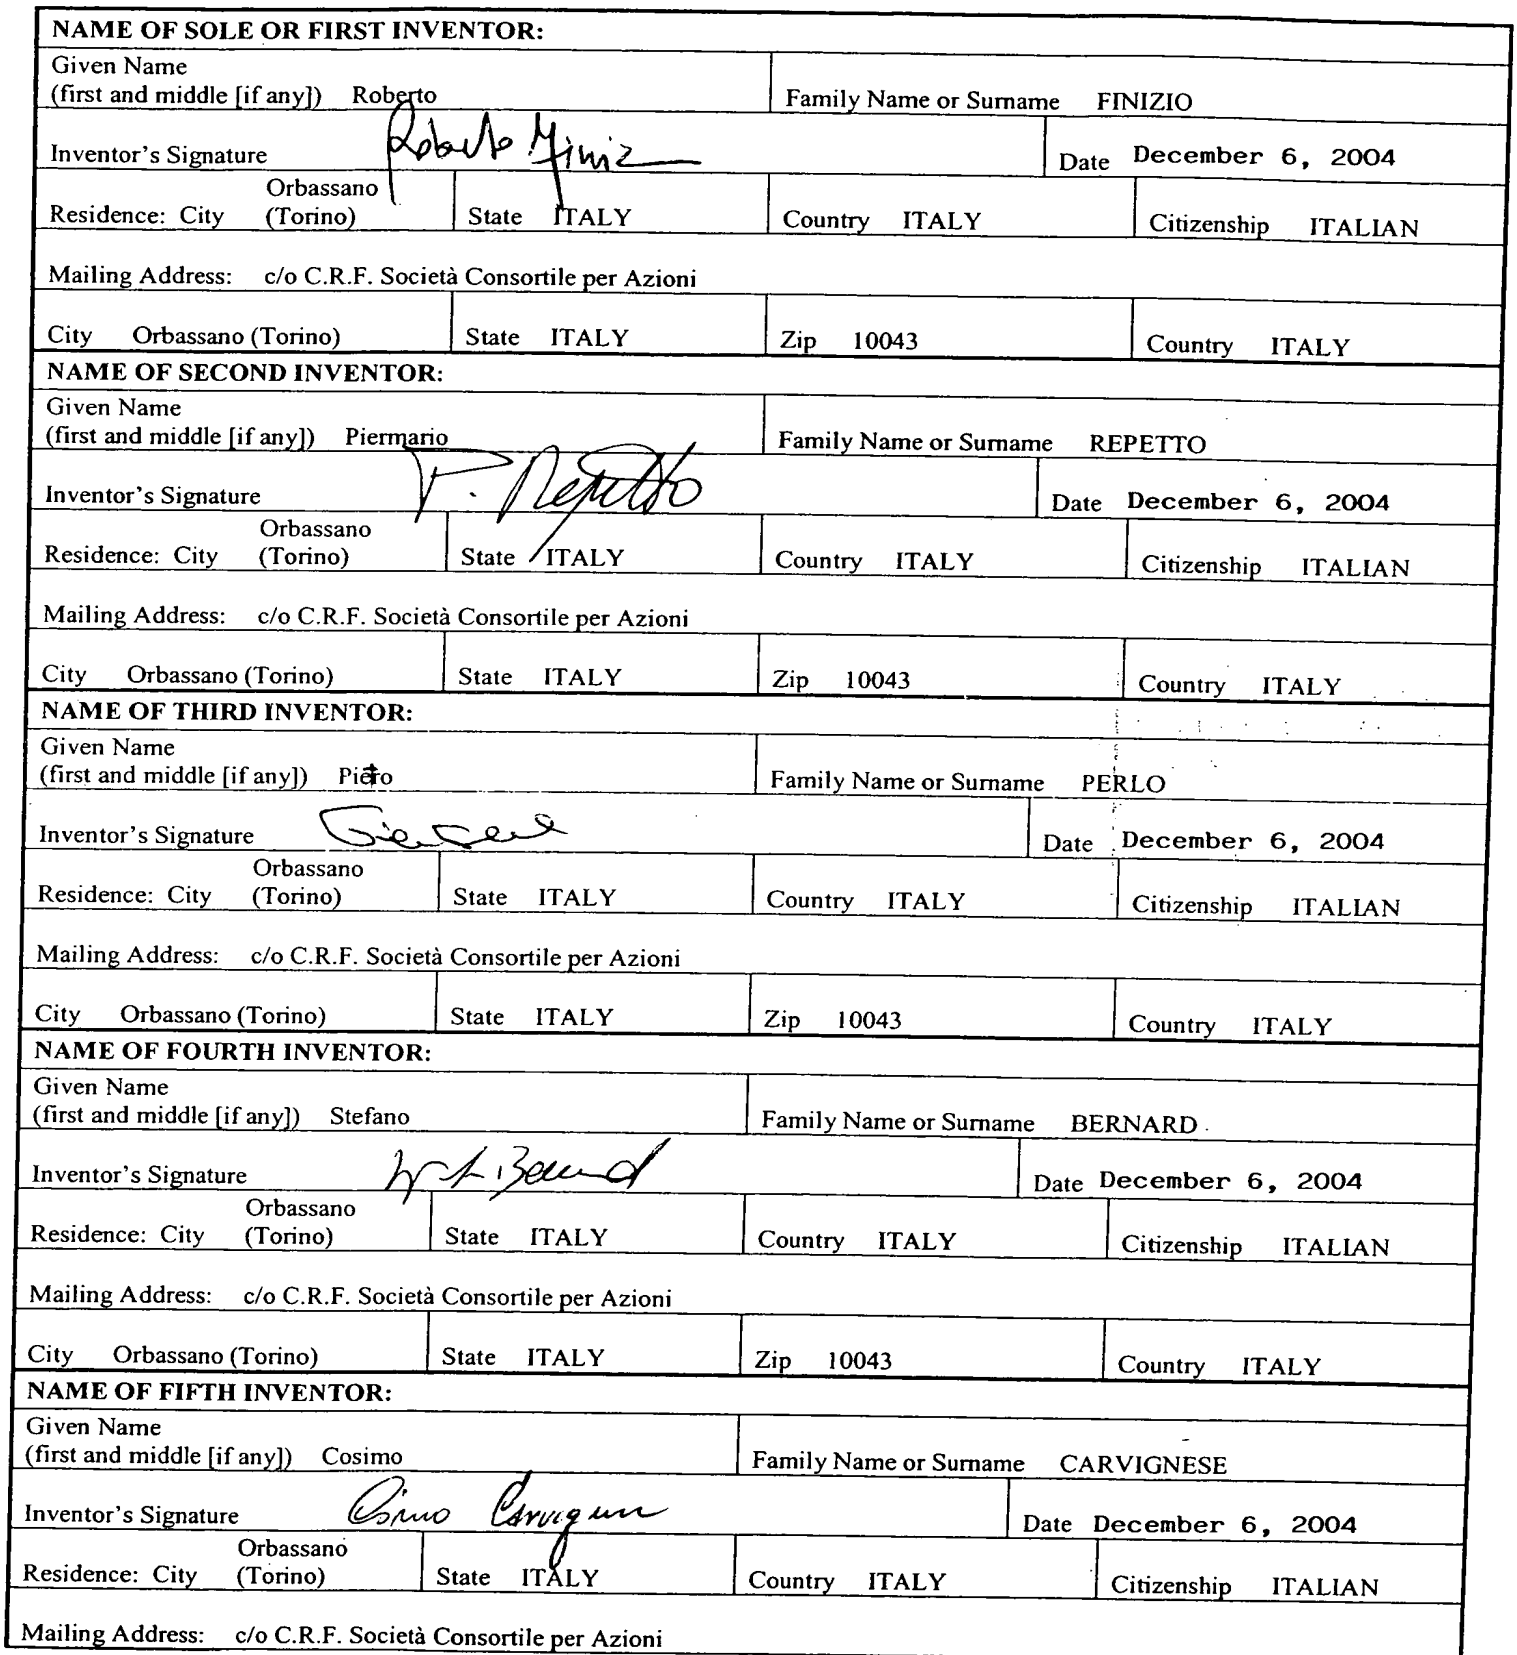 NAME OF SOLE OR FIRST INVENTOR:
Given Name
(first and middle [if any]) Roberto Family Name or Surname FINIZIO
Inventor's Signature Roberto Finiz Date December 6, 2004
Orbassano
Residence: City (Torino) State ITALY Country ITALY Citizenship ITALIAN
Mailing Address: c/o C.R.F. Società Consortile per Azioni
City Orbassano (Torino) State ITALY Zip 10043 Country ITALY
NAME OF SECOND INVENTOR:
Given Name
(first and middle [if any]) Piermario Family Name or Surname REPETTO
Inventor's Signature P. Repetto Date December 6, 2004
Orbassano
Residence: City (Torino) State ITALY Country ITALY Citizenship ITALIAN
Mailing Address: c/o C.R.F. Società Consortile per Azioni
City Orbassano (Torino) State ITALY Zip 10043 Country ITALY
NAME OF THIRD INVENTOR:
Given Name
(first and middle [if any]) Family Name or Surname PERLO
Inventor's Signature Date December 6, 2004
Orbassano
Residence: City (Torino) State ITALY Country ITALY Citizenship ITALIAN
Mailing Address: c/o C.R.F. Società Consortile per Azioni
City Orbassano (Torino) State ITALY Zip 10043 Country ITALY
NAME OF FOURTH INVENTOR:
Given Name
(first and middle [if any]) Stefano Family Name or Surname BERNARD
Inventor's Signature Date December 6, 2004
Orbassano
Residence: City (Torino) State ITALY Country ITALY Citizenship ITALIAN
Mailing Address: c/o C.R.F. Società Consortile per Azioni
City Orbassano (Torino) State ITALY Zip 10043 Country ITALY
NAME OF FIFTH INVENTOR:
Given Name
(first and middle [if any]) Cosimo Family Name or Surname CARVIGNESE
Inventor's Signature Date December 6, 2004
Orbassano
Residence: City (Torino) State ITALY Country ITALY Citizenship ITALIAN
Mailing Address: c/o C.R.F. Società Consortile per Azioni